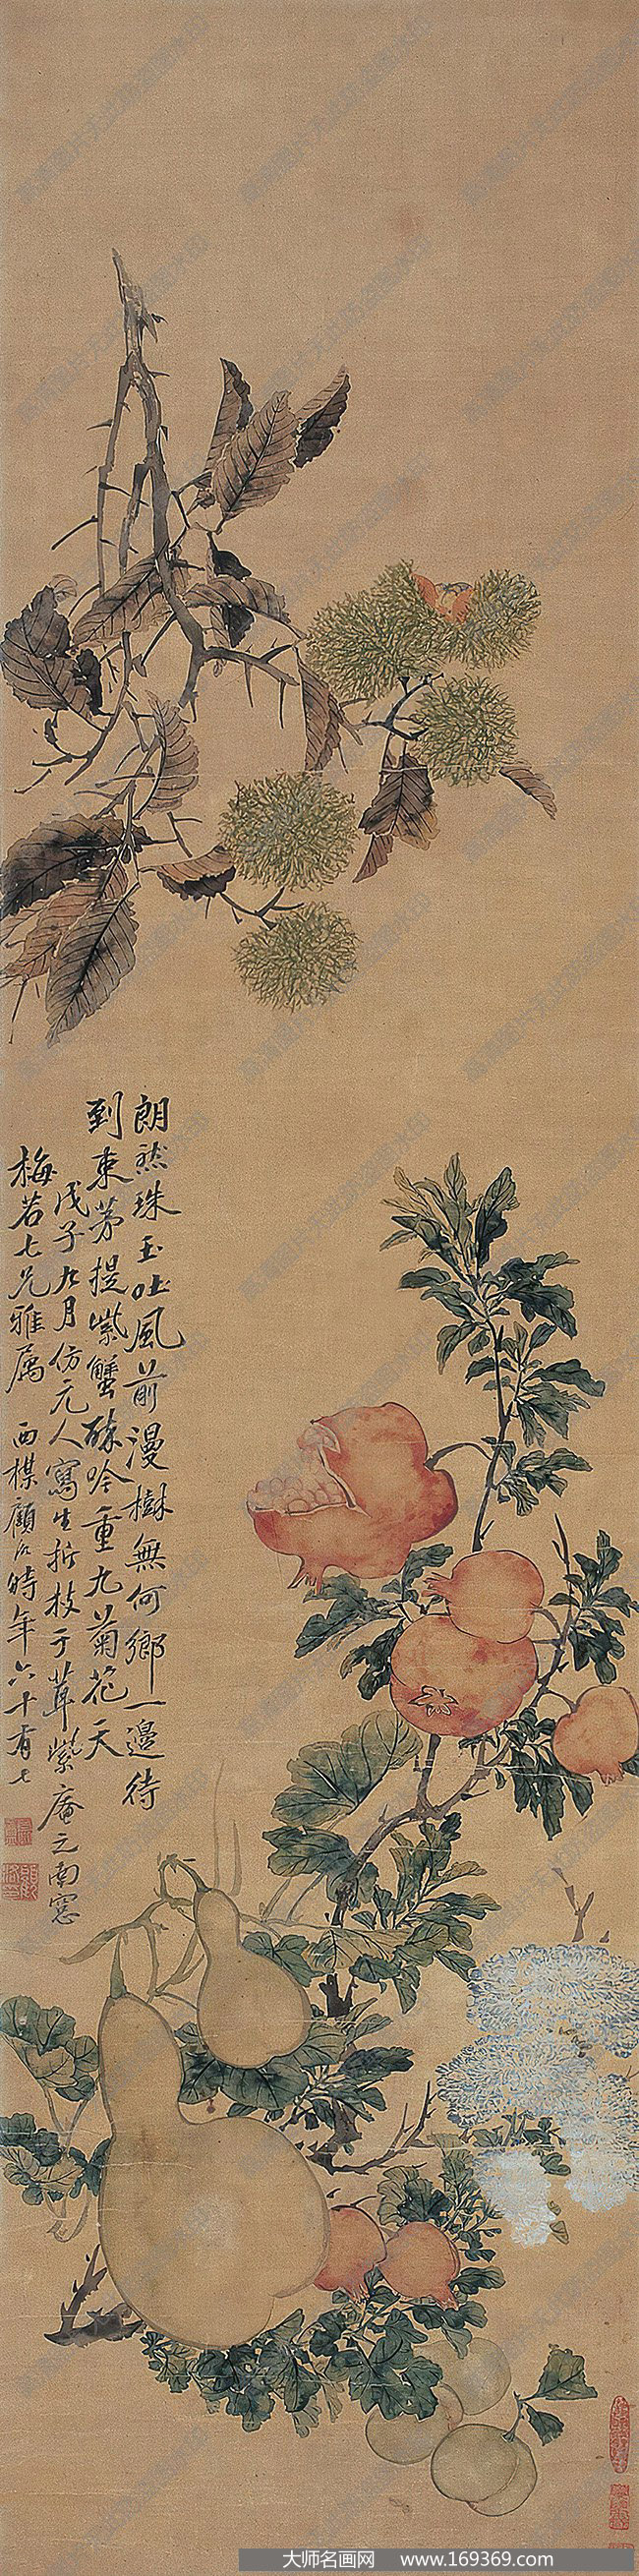 朗然珠玉吐風前漫樹無何鄉一邊待
到東茅提紫蟹酥吟重九菊花天
戊子九月仿元人寫生折枝于茸紫庵之南窓
梅若七兄雅属 西楳顧 時年六十有七
大师名画网 www.169369.com